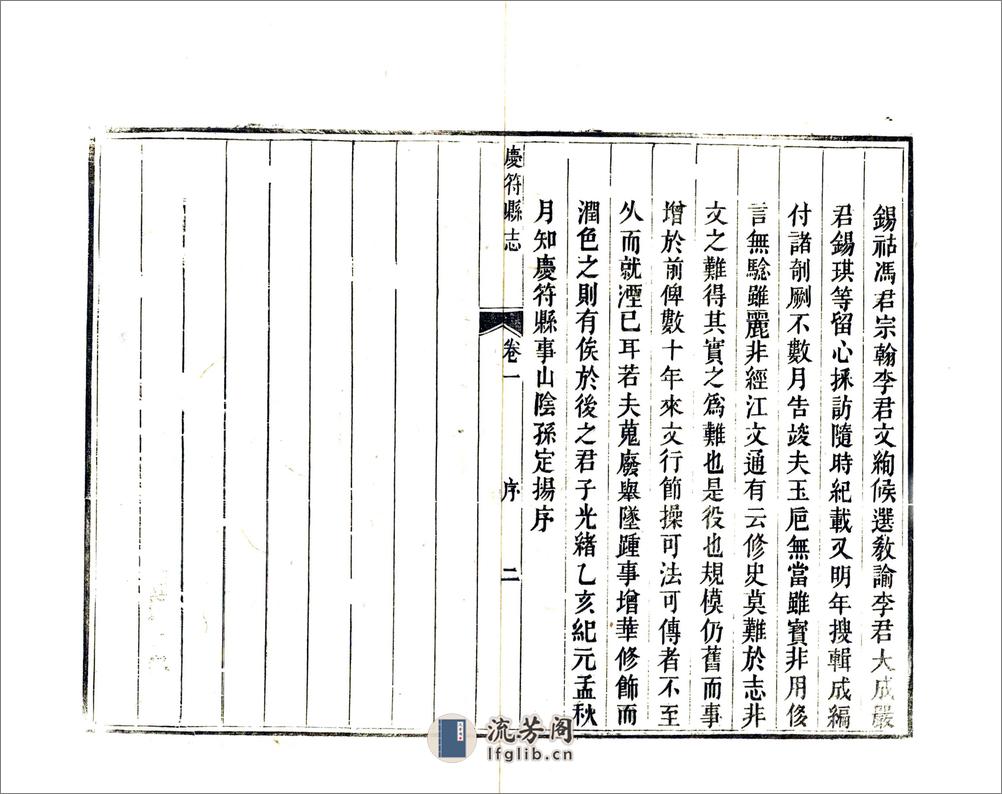 錫祜馮君宗翰李君文絢候選敎諭李君大成嚴
君錫琪等留心採訪隨時紀載又明年搜輯成編
付諸剞劂不數月告竣夫玉巵無當雖寳非用侈
言無騐雖麗非經江文通有云修史莫難於志非
文之難得其實之爲難也是役也規模仍舊而事
增於前俾數十年來文行節操可法可傳者不至
久而就湮已耳若夫蒐廢舉墜踵事增華修飾而
潤色之則有俟於後之君子光緒乙亥紀元孟秋
月知慶符縣事山陰孫定揚序
慶符縣志 卷一 序 二
流芳阁
lfglib.cn